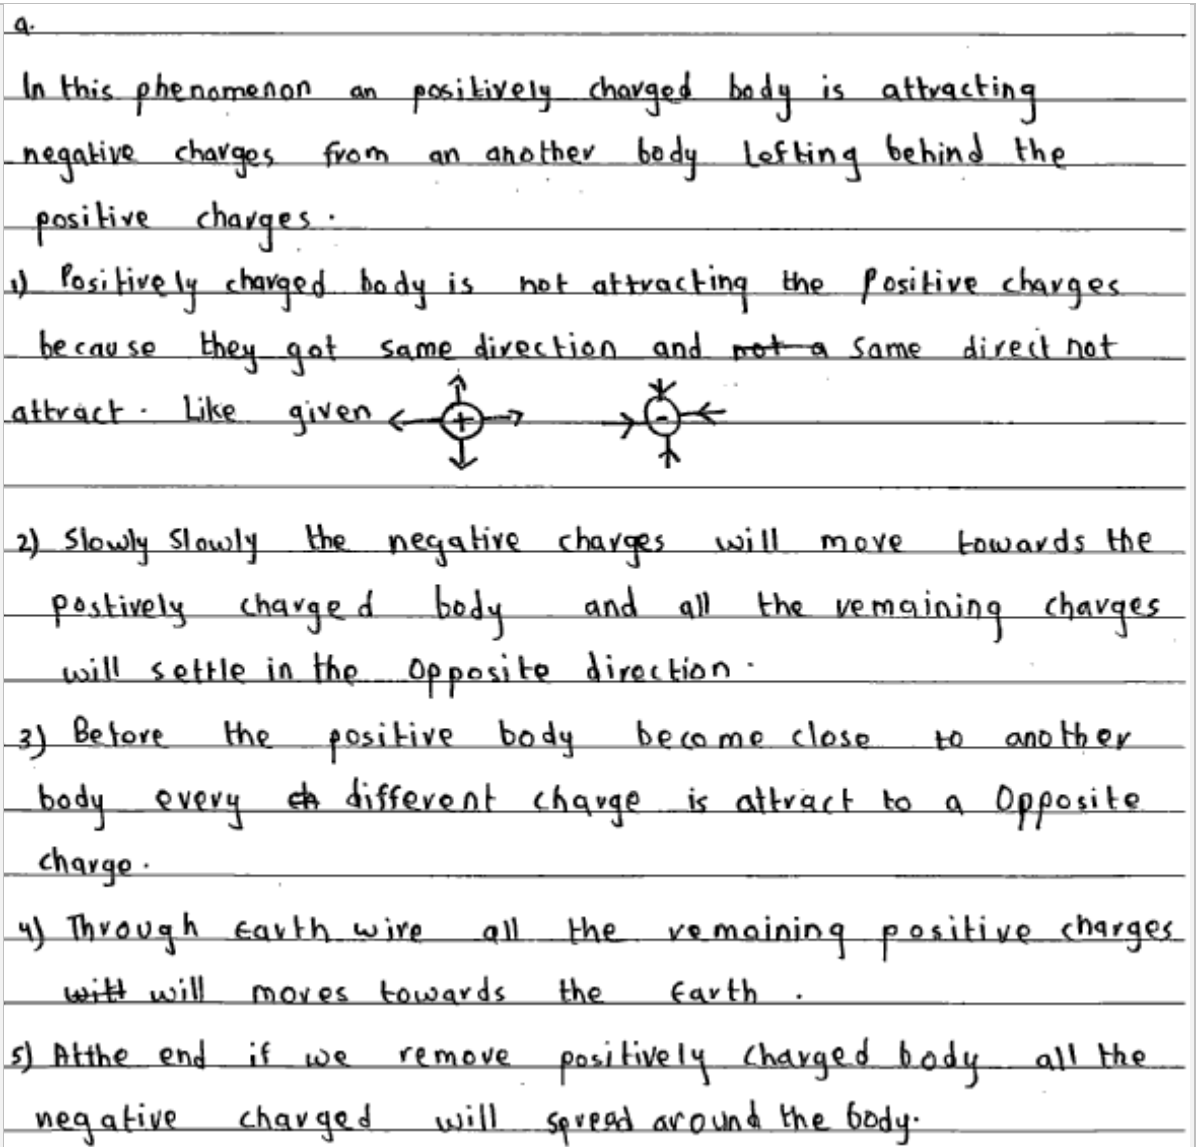 a.
In this phenomenon an positively charged body is attracting
negative charges from an another body Lefting behind the
positive charges.
1) Positively charged body is not attracting the Positive charges
because they got same direction and not a same direct not
attract. Like given + -
2) Slowly Slowly the negative charges will move towards the
postively charged body and all the remaining charges
will settle in the opposite direction.
3) Before the positive body become close to another
body every ch different charge is attract to a Opposite
charge.
4) Through Earth wire all the remaining positive charges
will will moves towards the Earth.
5) Atthe end if we remove positively charged body all the
negative charged will spread around the body.